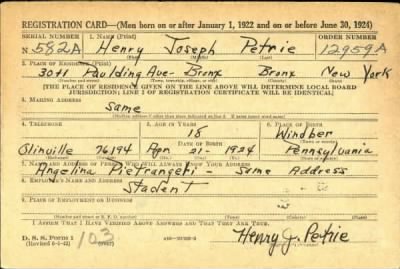 REGISTRATION CARD—(Men born on or after January 1, 1922 and on or before June 30, 1924)
SERIAL NUMBER 1. NAME (Print) ORDER NUMBER
N 582A Henry Joseph Petrie 12959A
(First) (Middle) (Last)
2. PLACE OF RESIDENCE (Print)
3041 Paulding Ave- Bronx Bronx New York
(Number and street) (Town, township, village, or city) (County) (State)
[THE PLACE OF RESIDENCE GIVEN ON THE LINE ABOVE WILL DETERMINE LOCAL BOARD
JURISDICTION; LINE 2 OF REGISTRATION CERTIFICATE WILL BE IDENTICAL]
3. MAILING ADDRESS
Same
[Mailing address if other than place indicated on line 2. If same insert word same]
4. TELEPHONE 5. AGE IN YEARS 6. PLACE OF BIRTH
18 Windber
DATE OF BIRTH
Olinville 76194 Apr 21- 1924 Pennsylvania
7. NAME AND ADDRESS OF PERSON WHO WILL ALWAYS KNOW YOUR ADDRESS
Angelina Pietrangeli - Same Address
8. EMPLOYER'S NAME AND ADDRESS
Student
9. PLACE OF EMPLOYMENT OR BUSINESS
(Number and street or R. F. D. number) (Town) (County) (State)
I AFFIRM THAT I HAVE VERIFIED ABOVE ANSWERS AND THAT THEY ARE TRUE.
D. S. S. Form 1
(Revised 6-9-42) (over)
103
Henry J. Petrie